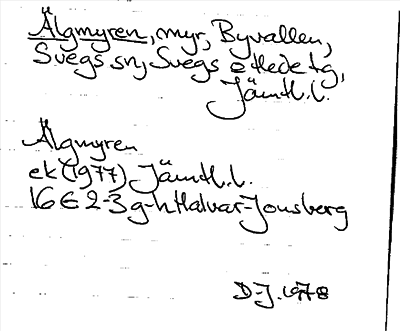 Älgmyren, myr, Byvallen,
Svegs sn, Svegs tg,
Jämtl.l.
Älgmyren
ek (1977) Jämtl.l.
16 E 2-3 g-h Halvar-Jonsberg
D-J. 1978